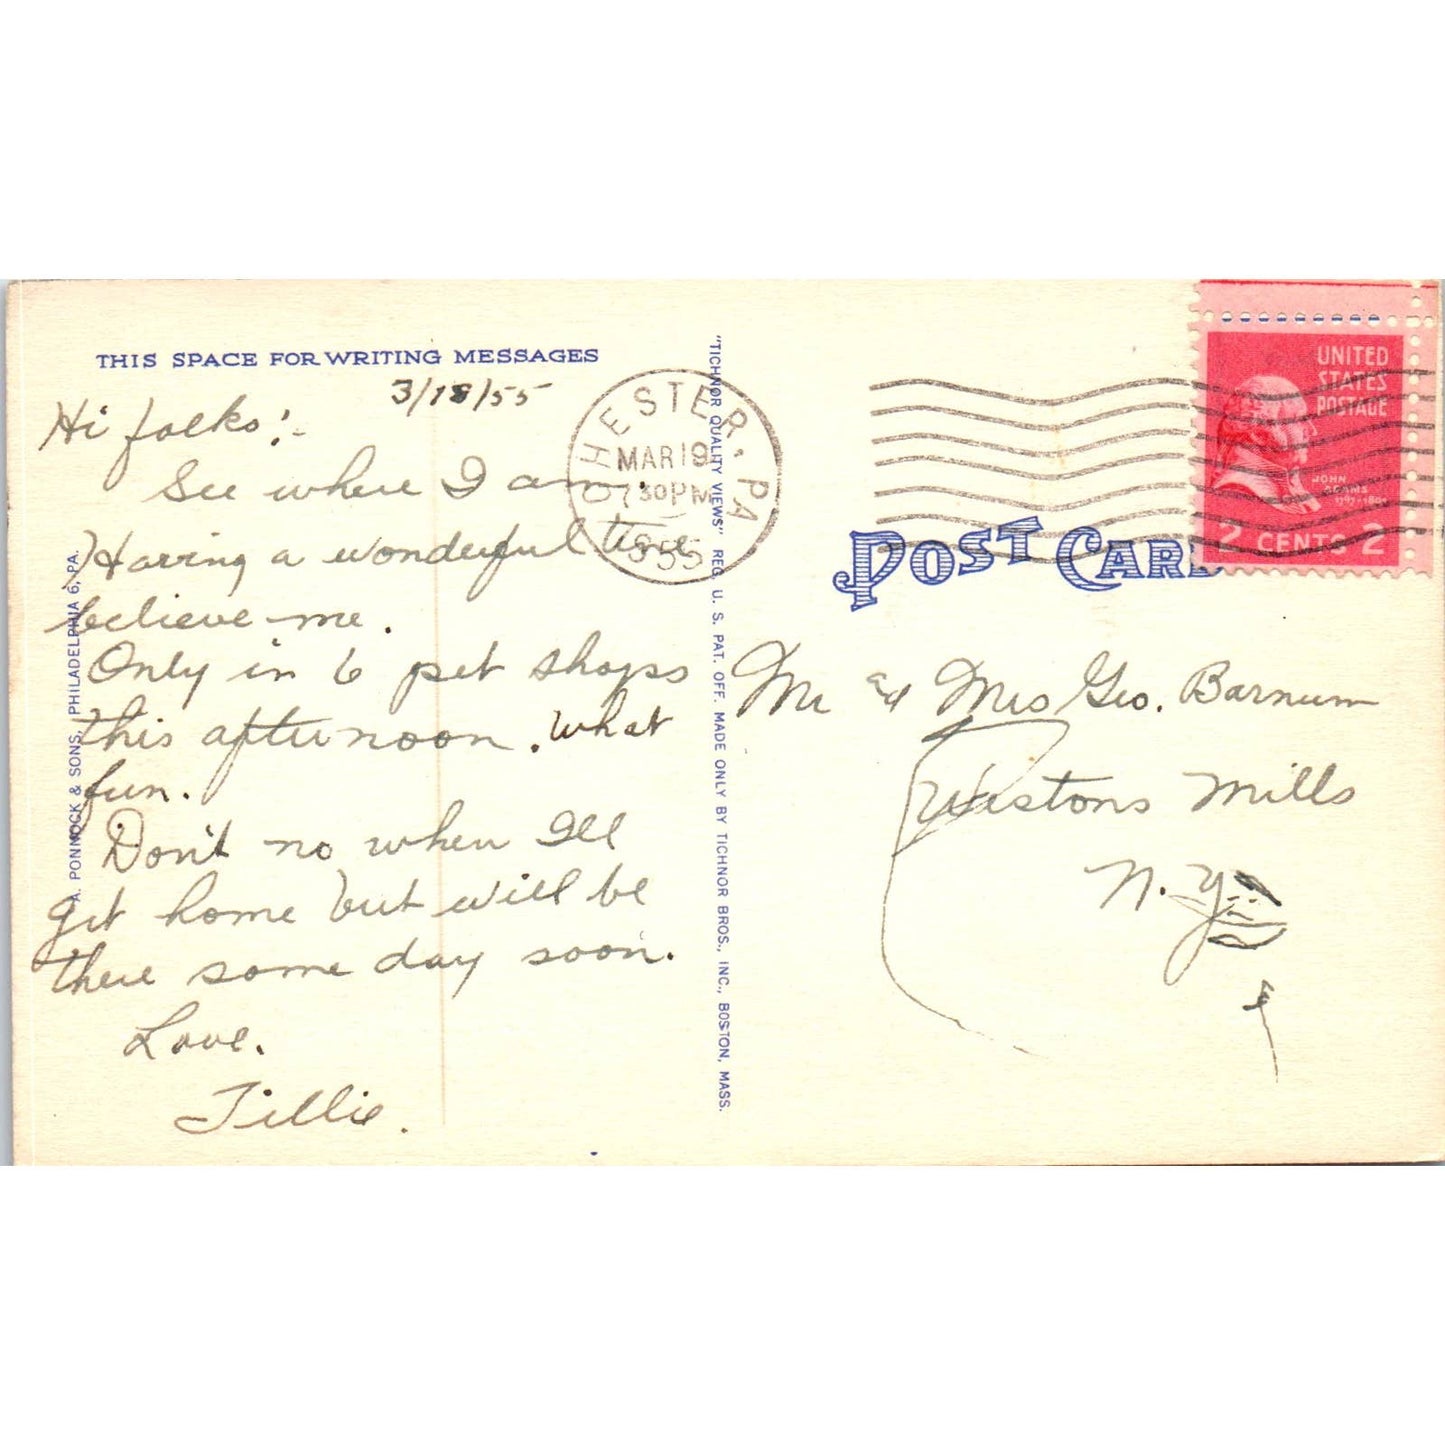 THIS SPACE FOR WRITING MESSAGES
3/18/55
Hi folks:-
See where I am.
Having a wonderful time
believe me.
Only in 6 pet shops
this afternoon. What
fun.
Don't no when Ill
get home but will be
there some day soon.
Love.
Tillie.
A. PONNOCK & SONS, PHILADELPHIA 6, PA.
"TICHNOR QUALITY VIEWS" REG. U. S. PAT. OFF. MADE ONLY BY TICHNOR BROS., INC., BOSTON, MASS.
CHESTER, PA
MAR 19
7 30 PM
1955
UNITED
STATES
POSTAGE
JOHN
ADAMS
1797-1801
2 CENTS 2
POST CARD
Mr and Mrs Geo. Barnum
Westons Mills
N. Y.